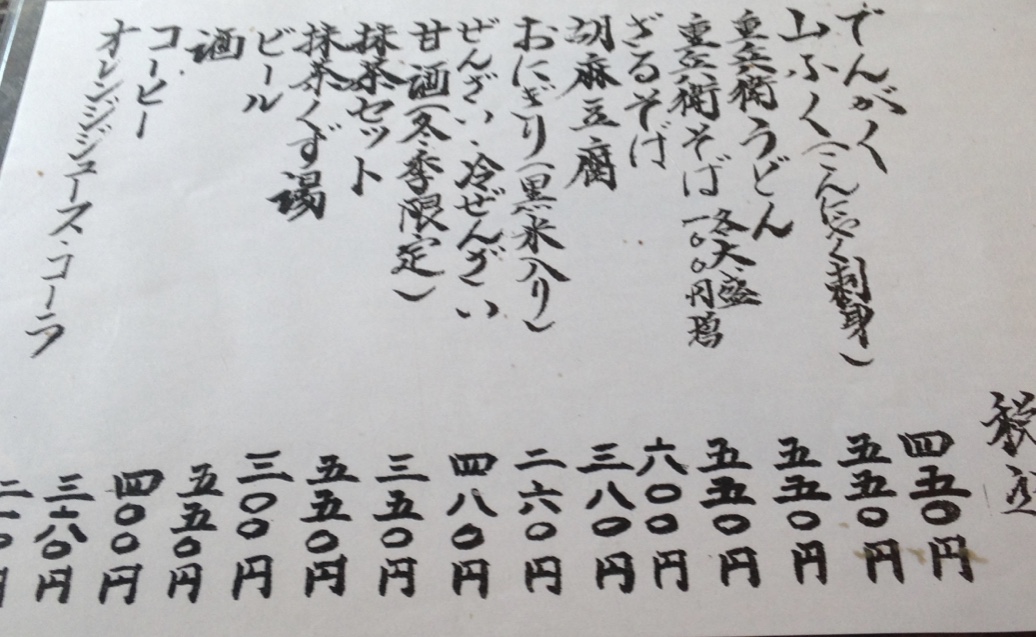 税込
でんがく 四五〇円
山ふく(こんにゃく刺身) 五五〇円
重兵衛うどん 五五〇円
重兵衛そば 五五〇円
各大盛
一〇〇円増
ざるそば 六〇〇円
胡麻豆腐 三八〇円
おにぎり(黒米入り) 二六〇円
ぜんざい・冷ぜんざい 四八〇円
甘酒(冬季限定) 三五〇円
抹茶セット 五五〇円
抹茶くず湯 三〇〇円
ビール 五五〇円
酒 四〇〇円
コーヒー 三八〇円
オレンジジュース・コーラ